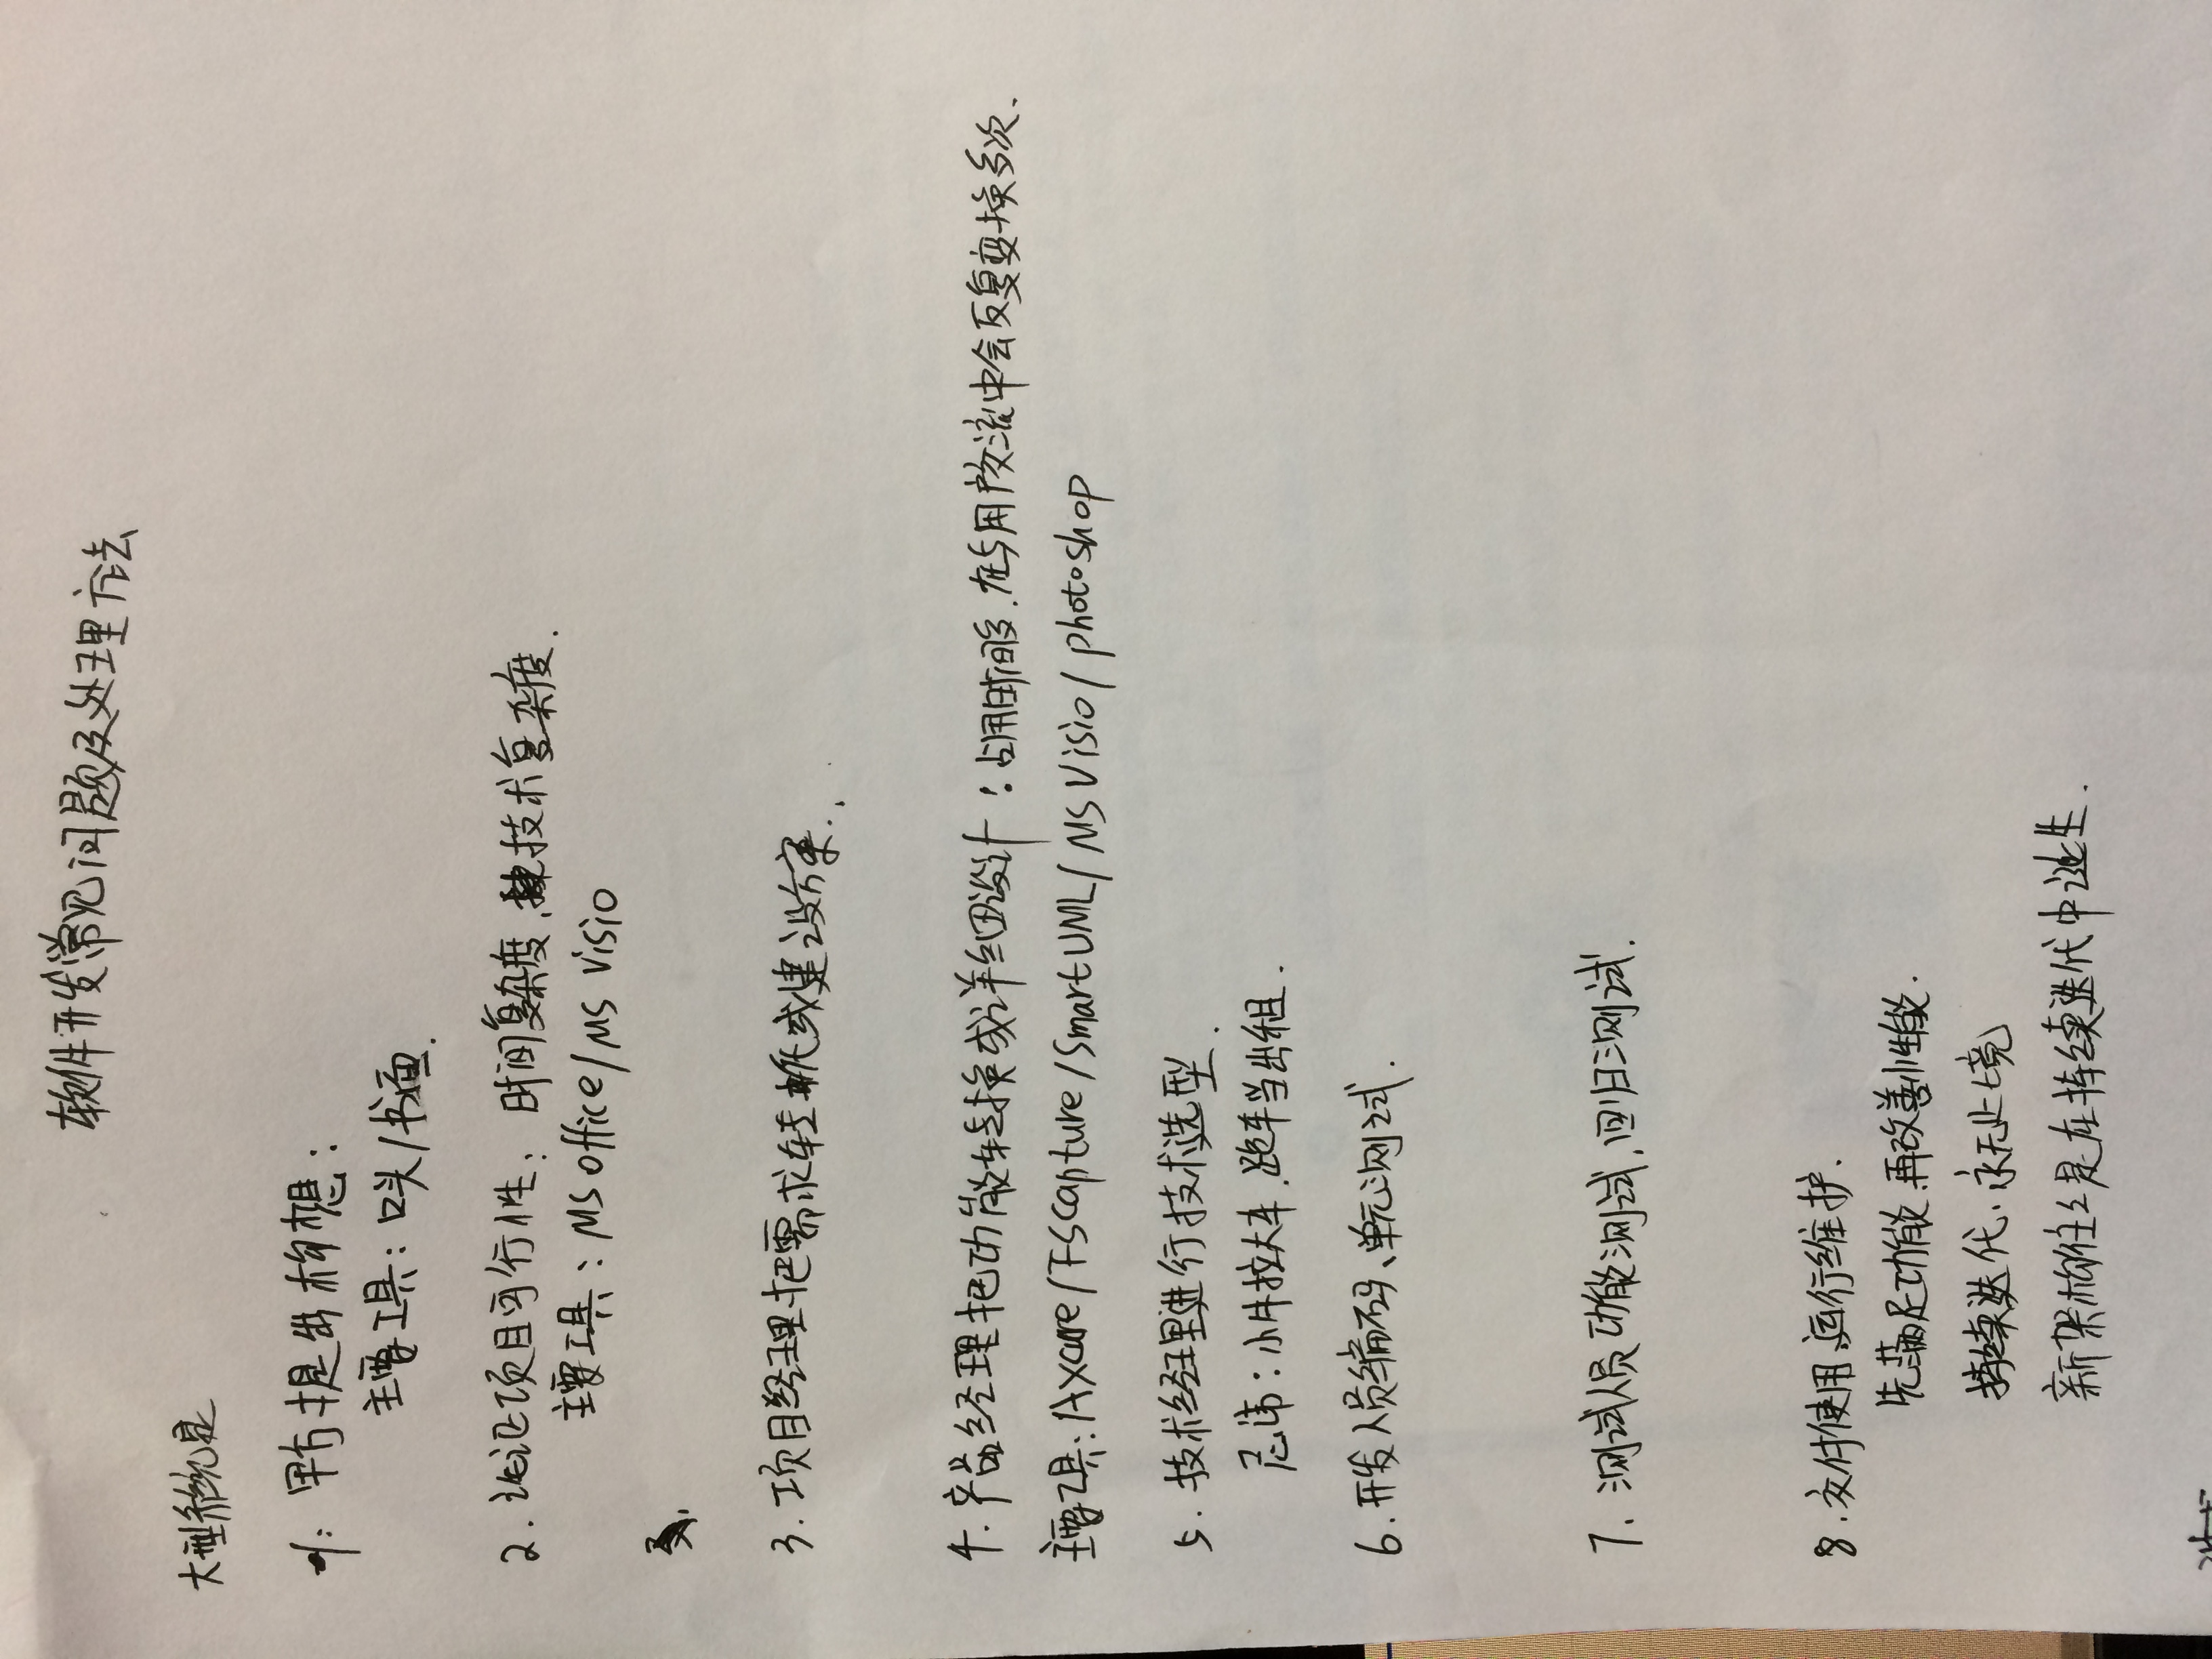 软件开发常见问题及处理方法
大型系统是
1. 甲方提出构想:
主要工具: 口头/书面.
2. 论证项目可行性: 时间复杂度、技术复杂度.
主要工具: MS office/MS Visio
3. 项目经理把需求转换成建设方案.
4. 产品经理把功能转换成详细设计: 占用时间多.在与用户交流中会反复变换多次.
主要工具: Axure/FSCapture/SmartUML/MS Visio/photoshop
5. 技术经理进行技术选型.
忌讳: 小牛拉大车.跑车当出租.
6. 开发人员编码、单元测试.
7. 测试人员功能测试,回归测试.
8. 交付使用,运行维护.
先满足功能,再改善性能.
持续迭代,永无止境
新架构往々是在持续迭代中诞生.